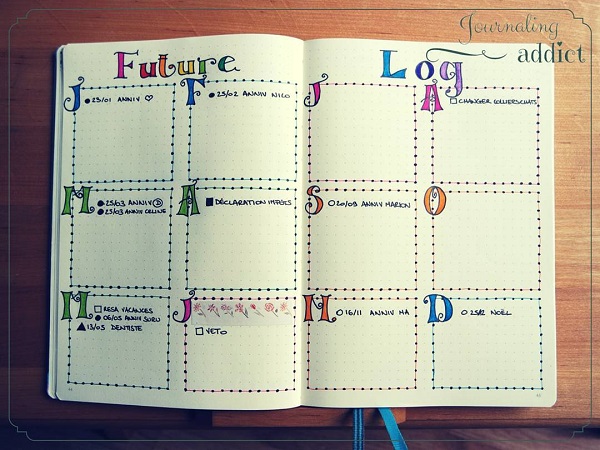 Journaling
addict
Future Log
J
23/01 ANNIV
F
25/02 ANNIV NICO
M
25/03 ANNIV
25/03 ANNIV CELINE
A
DÉCLARATION IMPÔTS
M
RESA VACANCES
06/05 ANNIV SURU
13/05 DENTISTE
J
VETO
J
A
CHANGER COLLIERS CHATS
S
20/09 ANNIV MARION
O
N
16/11 ANNIV MA
D
25/12 NOËL